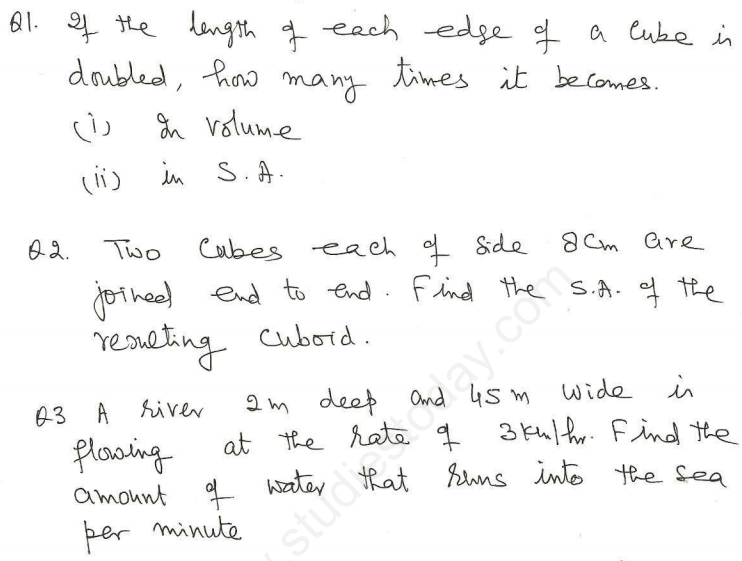 Q1. If the length of each edge of a cube is
doubled, how many times it becomes.
(i) In volume
(ii) in S.A.
Q2. Two Cubes each of side 8cm are
joined end to end. Find the S.A. of the
resulting cuboid.
Q3 A river 2m deep and 45m wide is
flowing at the rate of 3km/hr. Find the
amount of water that runs into the sea
per minute
studiestoday.com